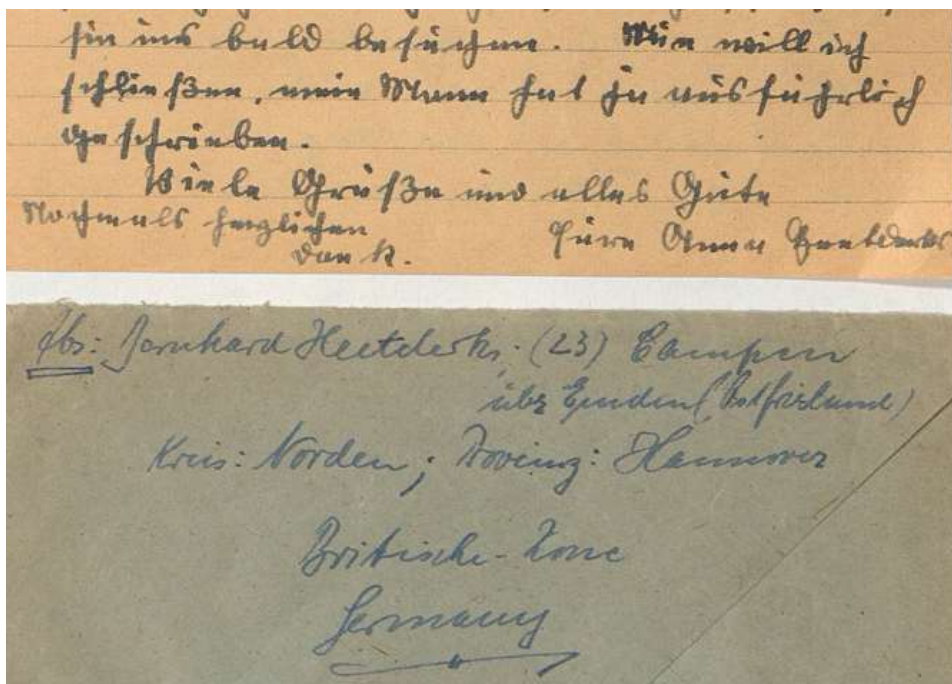 sie uns bald besuchen. Nun will ich
schließen, mein Mann hat ja ausführlich
geschrieben.
Viele Grüße und alles Gute
Nochmals herzlichen
Dank.
Eure Anna Heetderks
Abs: Bernhard Heetderks. (23) Campen
über Emden (Ostfriesland)
Kreis: Norden; Provinz: Hannover
Britische-Zone
Germany